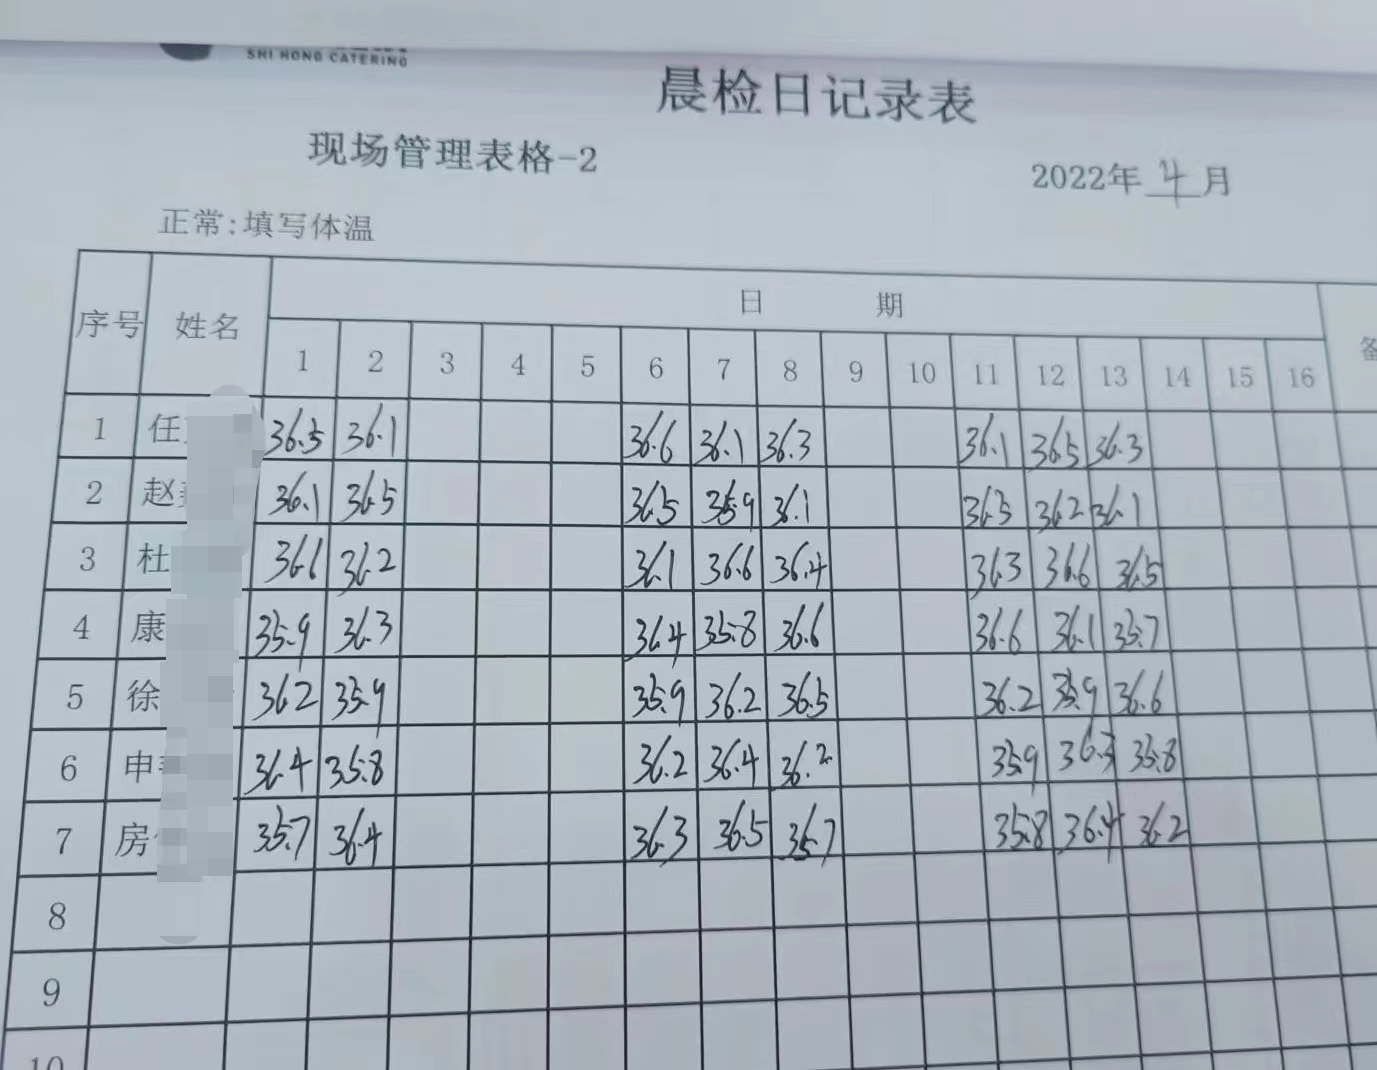 SHI HONG CATERING
晨检日记录表
现场管理表格-2
2022年 4 月
正常:填写体温
序号 姓名 日 期 备
1 2 3 4 5 6 7 8 9 10 11 12 13 14 15 16
1 任 36.5 36.1 36.6 36.1 36.3 36.1 36.5 36.3
2 赵 36.1 36.5 36.5 35.9 36.1 36.5 36.2 36.1
3 杜 36.6 36.2 36.1 36.6 36.4 36.3 36.6 36.5
4 康 35.9 36.3 36.4 35.8 36.6 36.6 36.1 35.7
5 徐 36.2 35.9 35.9 36.2 36.5 36.2 35.9 36.6
6 申 36.4 35.8 36.2 36.4 36.2 35.9 36.3 35.8
7 房 35.7 36.4 36.3 36.5 35.7 35.8 36.4 36.2
8
9
10